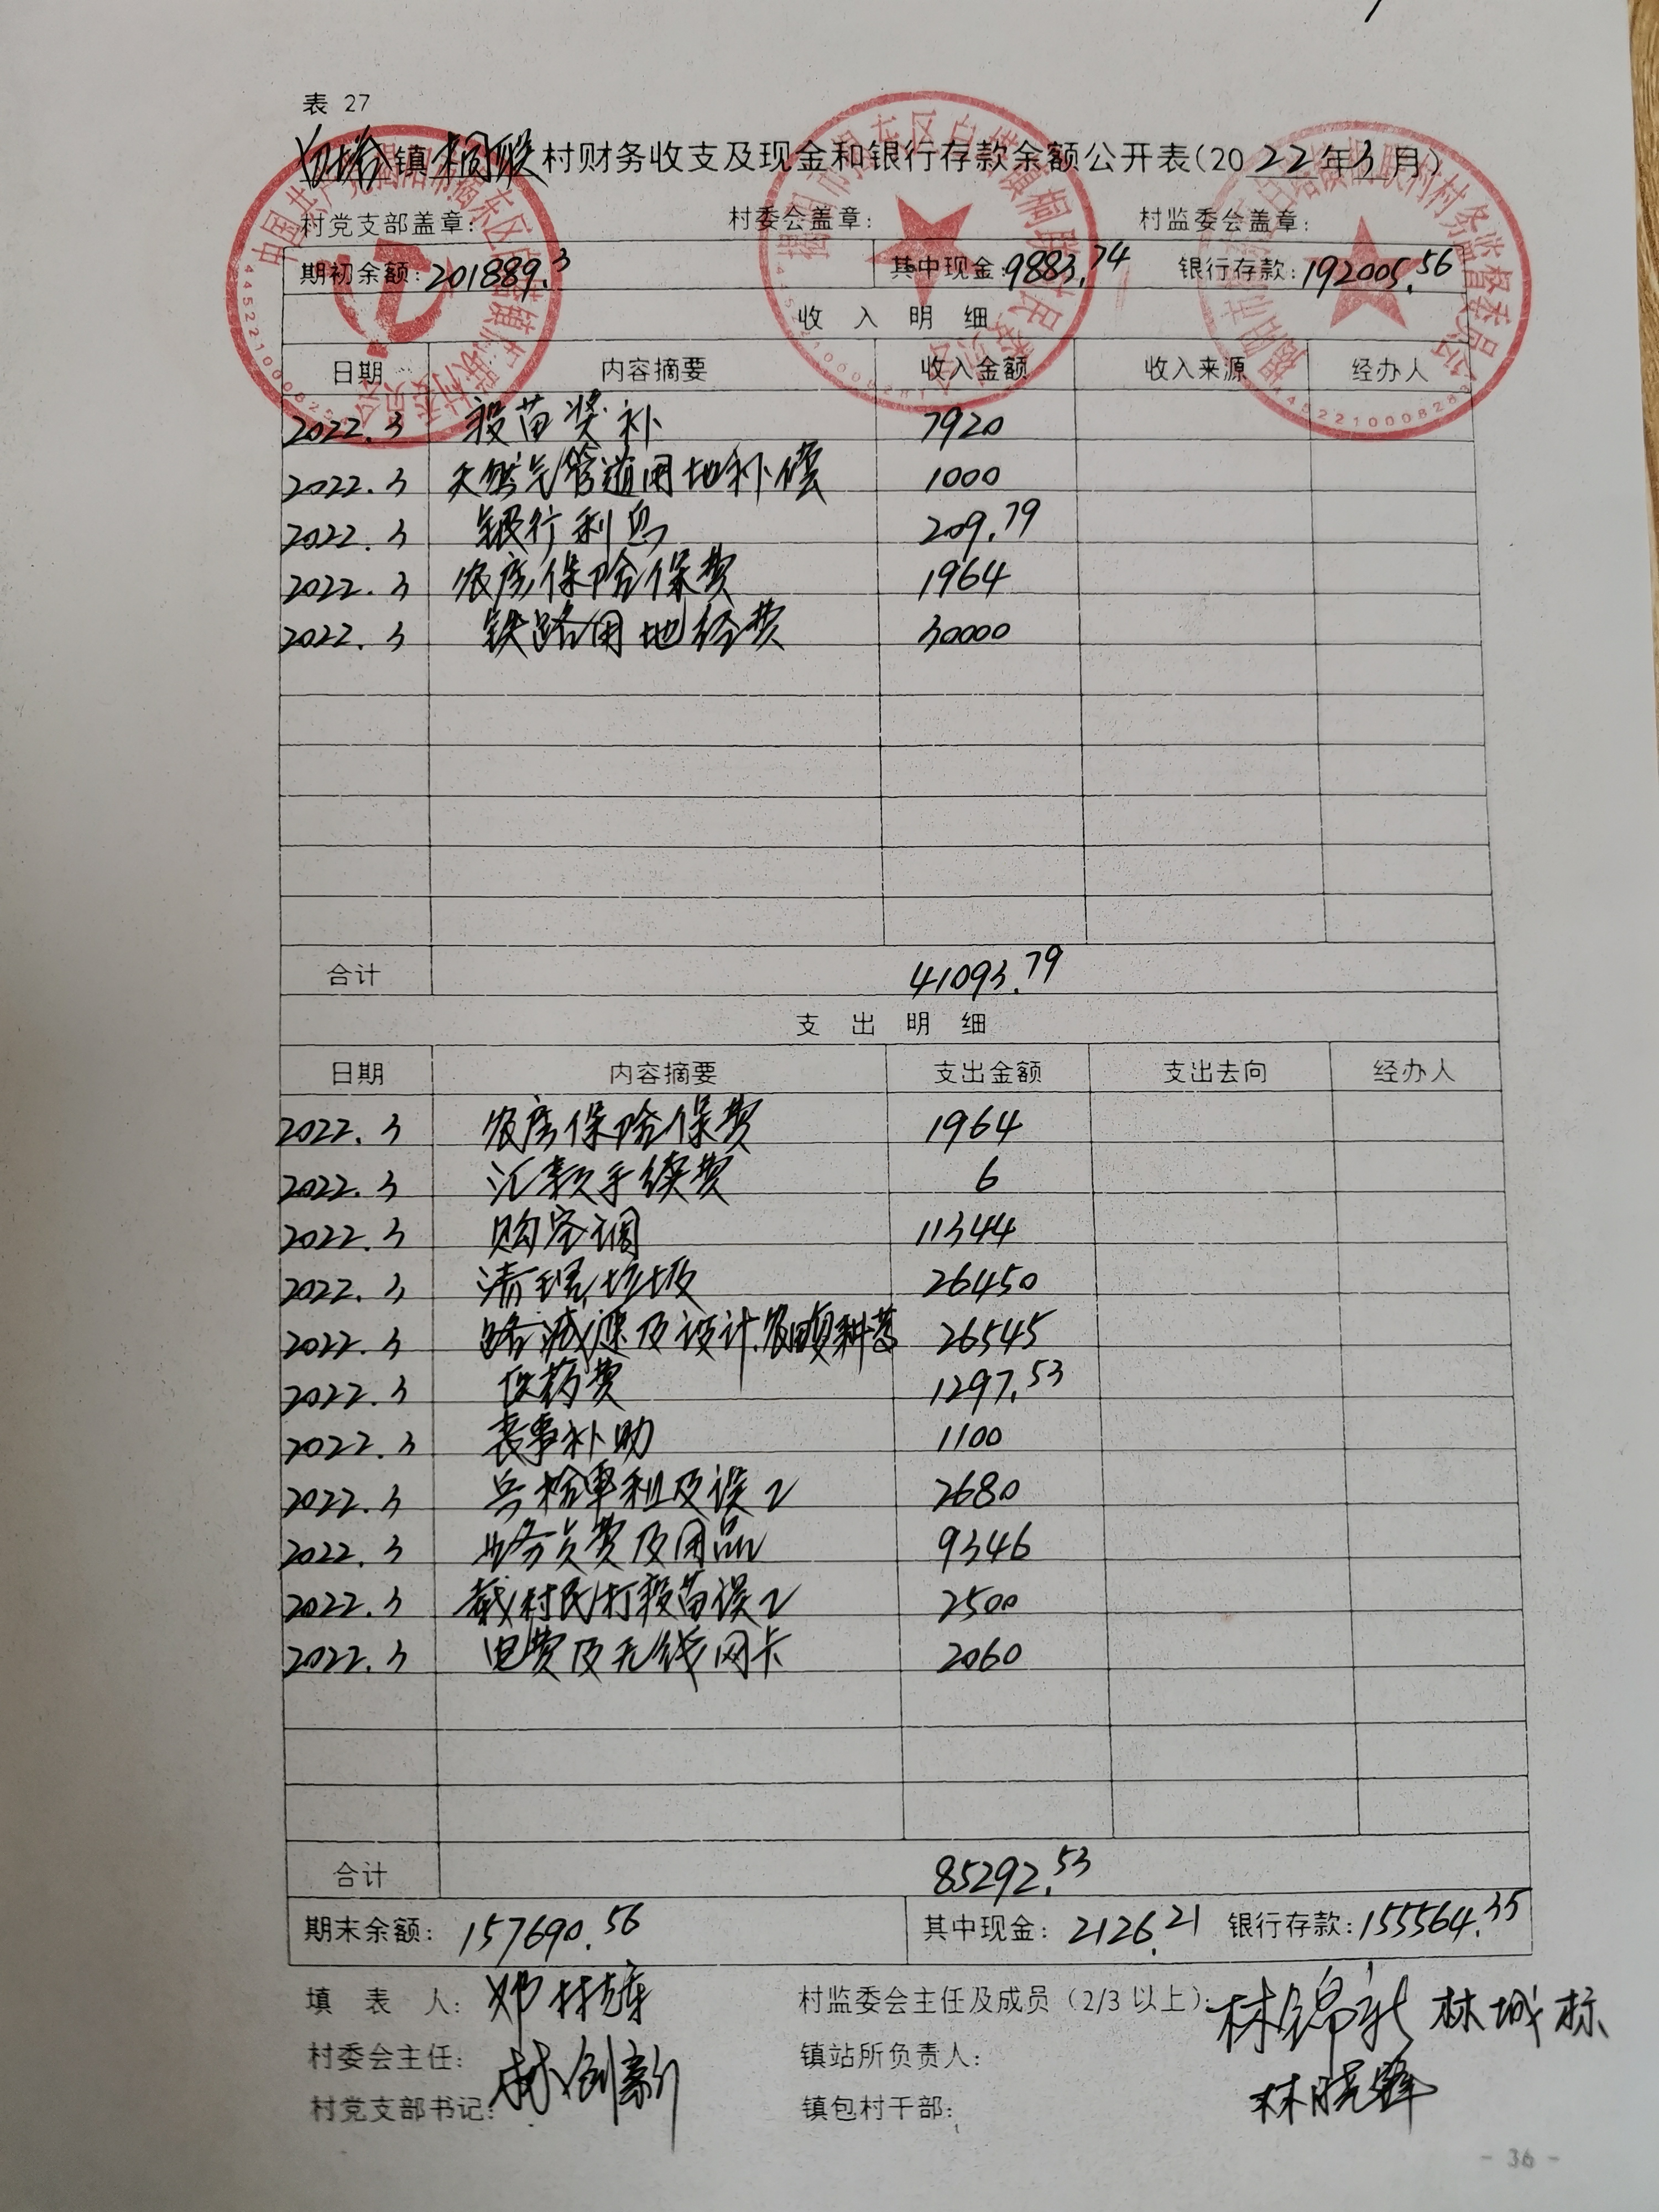 表 27
白塔镇桐联村财务收支及现金和银行存款余额公开表(2022年3月)
村党支部盖章: 村委会盖章: 村监委会盖章:
期初余额:201889.3 其中现金:9883.74 银行存款:192005.56
收入明细
日期 内容摘要 收入金额 收入来源 经办人
2022.3 投苗奖补 7920
2022.3 天然气管道用地补偿 1000
2022.3 银行利息 209.79
2022.3 农房保险保费 1964
2022.3 铁路用地经费 30000
合计 41093.79
支出明细
日期 内容摘要 支出金额 支出去向 经办人
2022.3 农房保险保费 1964
2022.3 汇款手续费 6
2022.3 购空调 11344
2022.3 清理垃圾 26450
2022.3 路减速及设计.农田复耕 26545
2022.3 医药费 1297.53
2022.3 丧事补助 1100
2022.3 兵检车租及误工 2680
2022.3 业务费及用品 9346
2022.3 载村民打疫苗误工 2500
2022.3 电费及无线网卡 2060
合计 85292.53
期末余额: 157690.56 其中现金: 2126.21 银行存款:155564.35
填表人: 村监委会主任及成员(2/3以上): 林锦彬 林城标
村委会主任: 林创新 镇站所负责人:
村党支部书记: 镇包村干部: 林晓峰
- 36 -